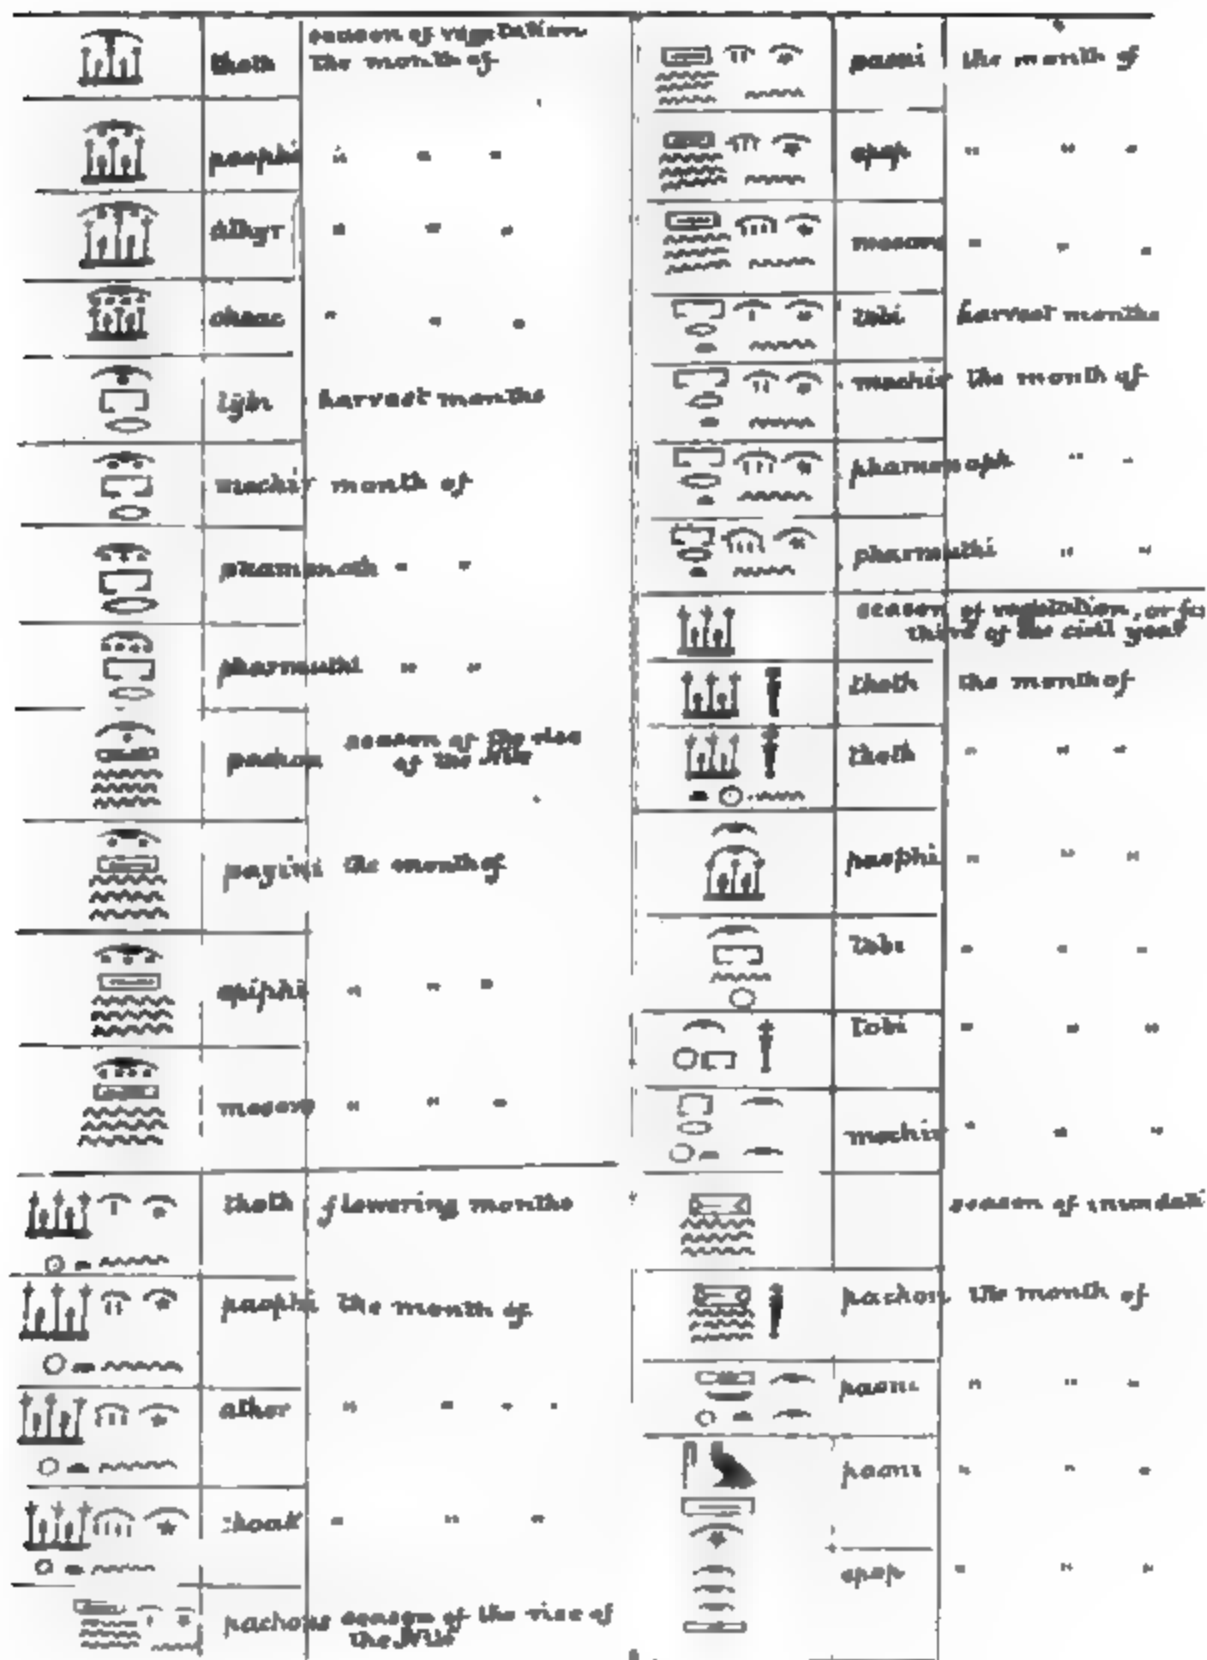 season of vegetation
thoth the month of
paophi " " "
athyr " " "
choac " " "
tybi harvest months
mechir month of
phamenoth " "
pharmuthi " "
pachon season of the rise
of the Nile
payini the month of
epiphi " " "
mesore " " "
thoth flowering months
paophi the month of
athor " " " "
choak " " "
pachons season of the rise of
the Nile
paoni the month of
epep " " "
mesore " " "
tobi harvest months
mechir the month of
phamenoph " "
pharmuthi " "
season of vegetation, or
third of the civil year
thoth the month of
thoth " " "
paophi " " "
tobi " " "
tobi " " "
mechir " " "
season of inundati
pachon the month of
paoni " " "
paoni " " "
epep " " "